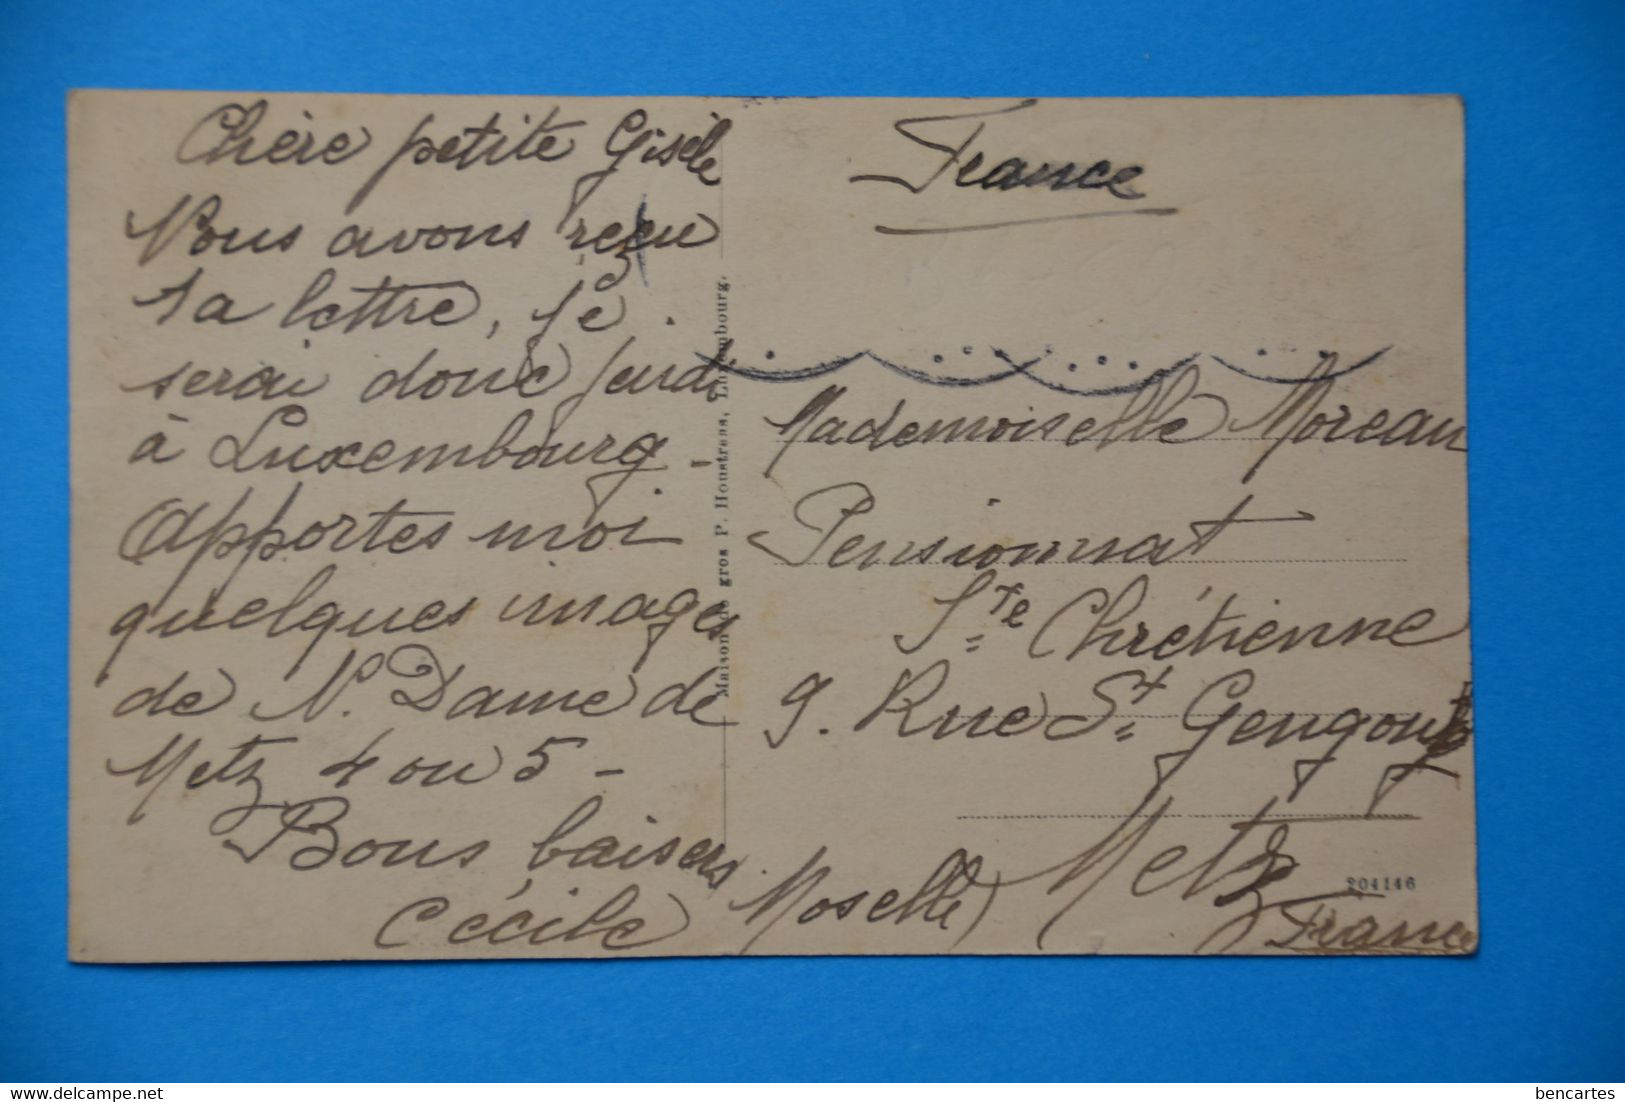 Chère petite Gisèle
Nous avons reçu
ta lettre, je
serai donc jeudi
à Luxembourg -
Apportes moi
quelques images
de N. Dame de
Metz 4 ou 5 -
Bons baisers
Cécile
Maison de gros P. Houstrass, Luxembourg.
France
Mademoiselle Moreau
Pensionnat
Ste Chrétienne
9. Rue St Gengoulf
Metz
Moselle)
France
204146
www.delcampe.net
bencartes